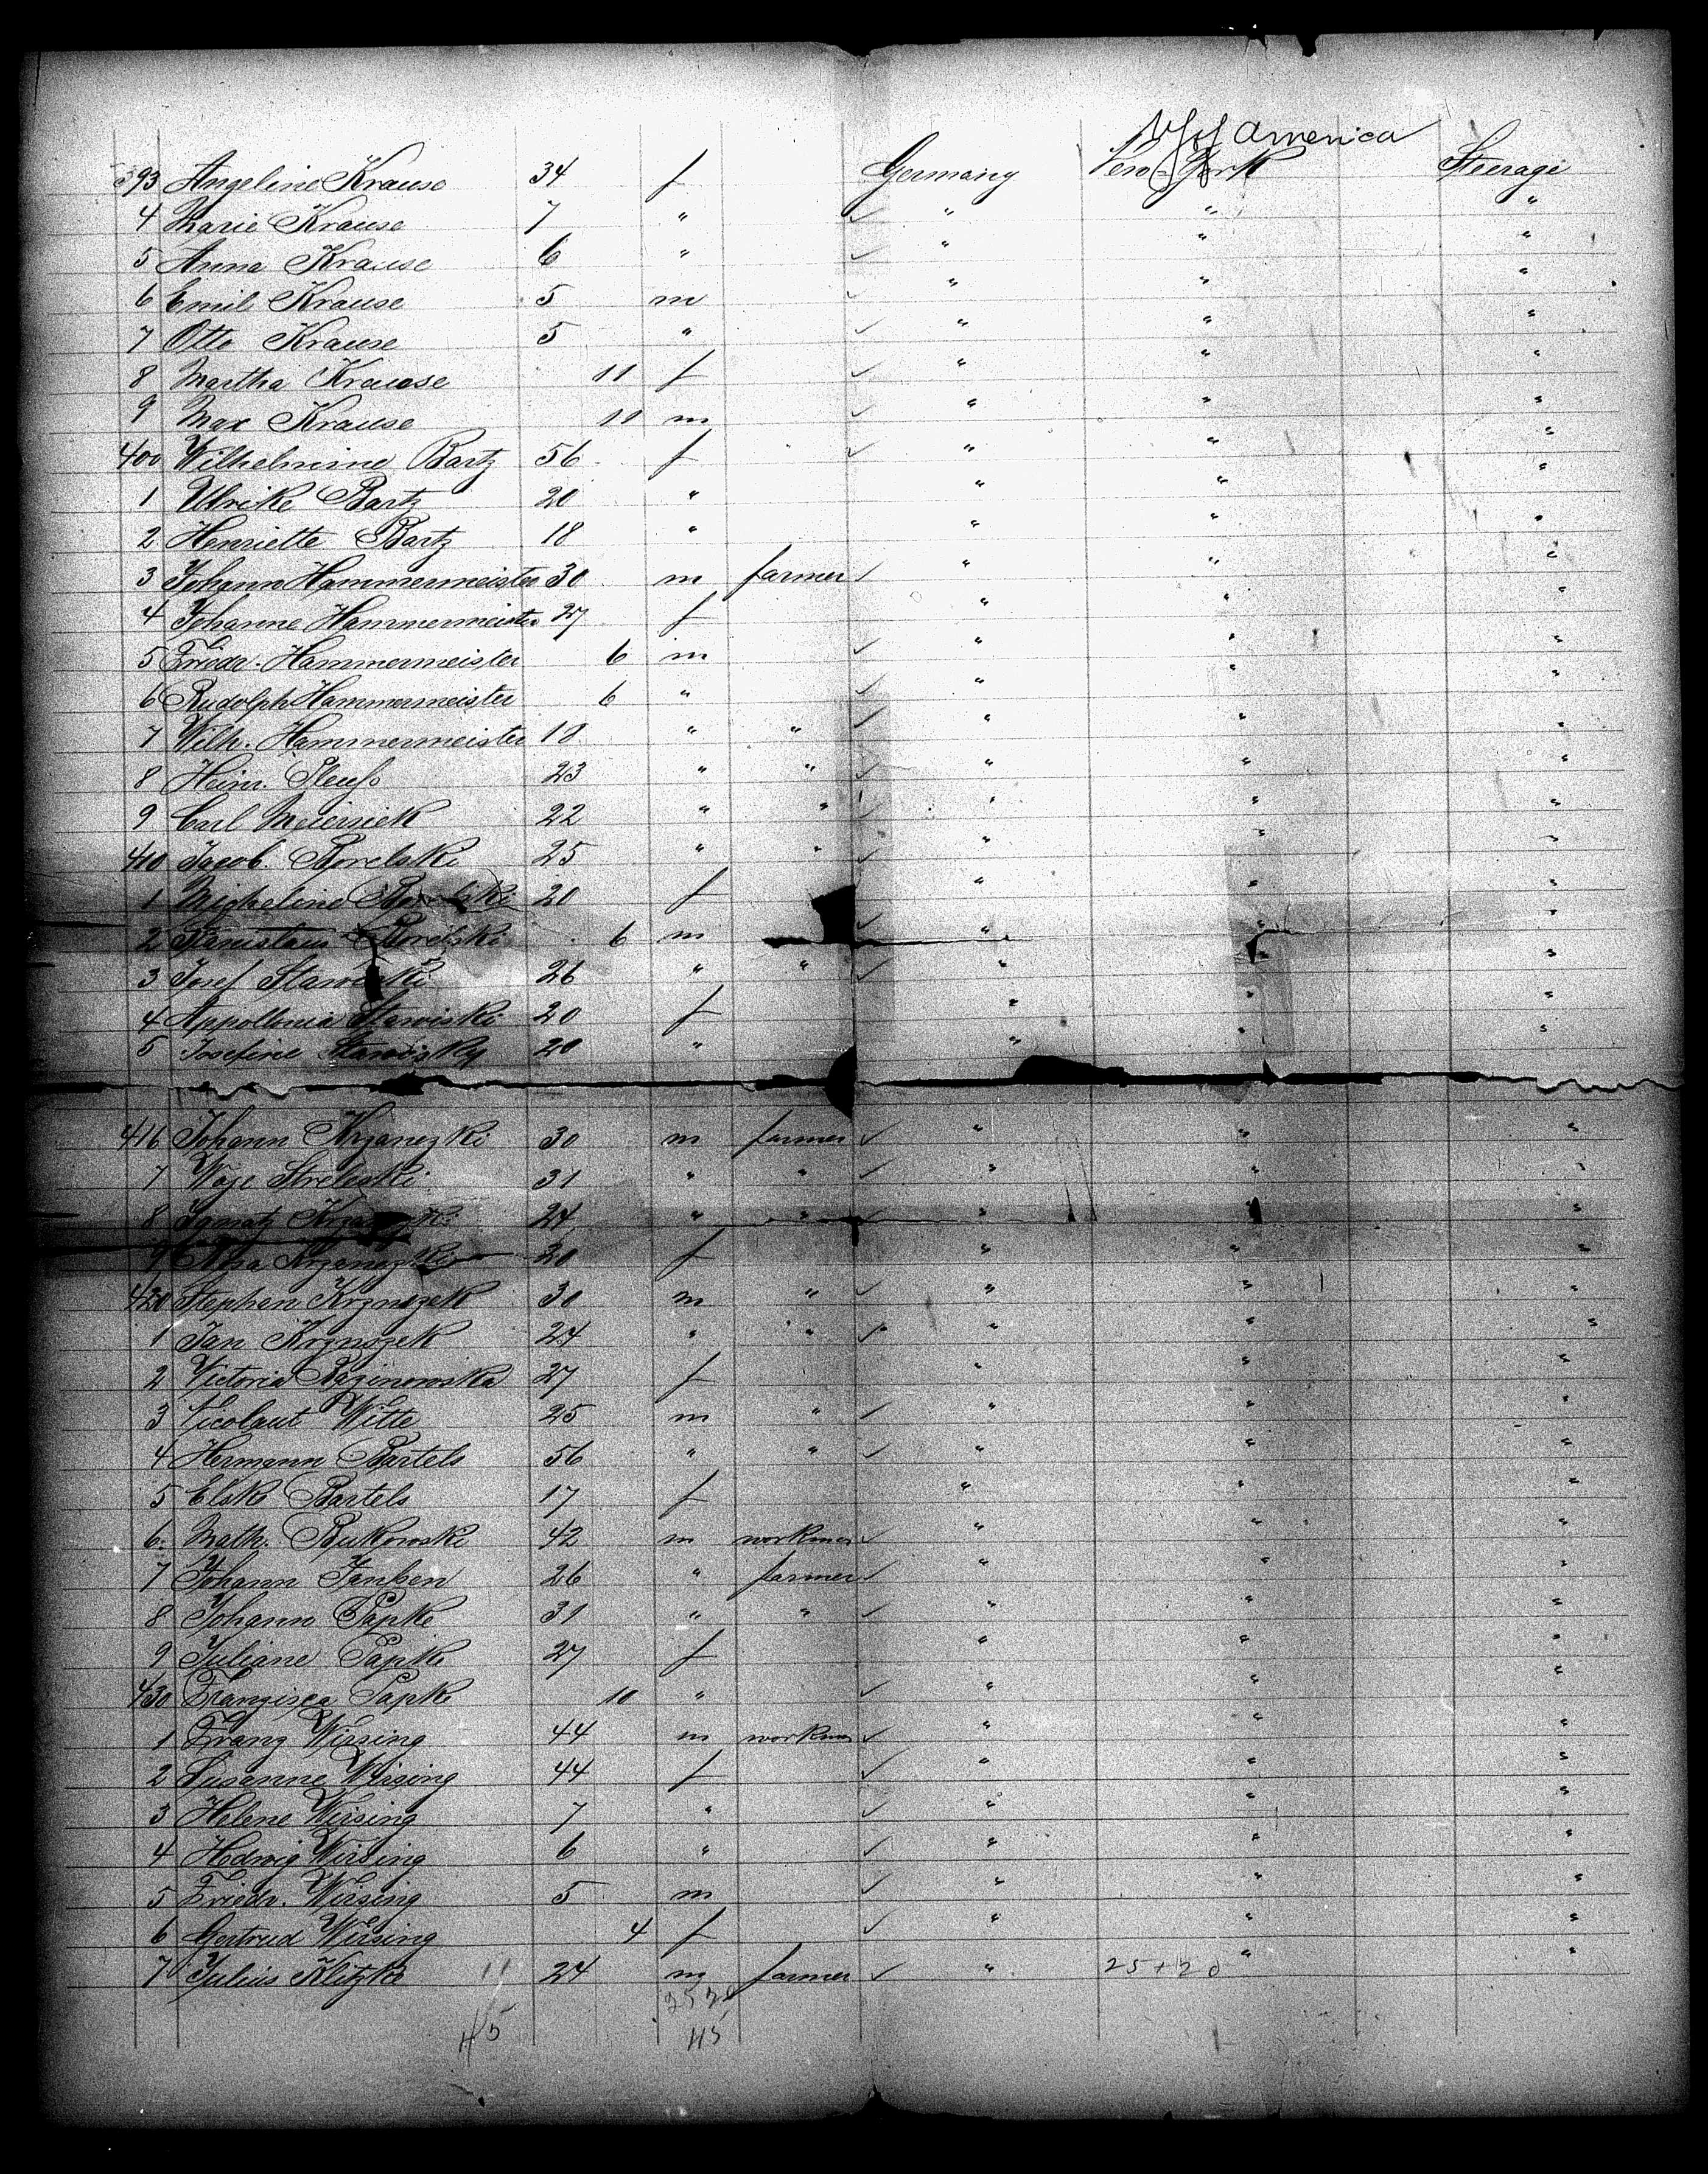 U.S. of America
393 Angeline Krause 34 f Germany New-York Steerage
4 Marie Krause 7 " ✓ " " "
5 Anna Krause 6 " ✓ " " "
6 Emil Krause 5 m ✓ " " "
7 Otto Krause 5 " ✓ " " "
8 Martha Krause 11 f ✓ " " "
9 Max Krause 11 m ✓ " " "
400 Wilhelmine Bartz 56 f ✓ " " "
1 Ulrike Bartz 20 " " " "
2 Henriette Bartz 18 " " " "
3 Johann Hammermeister 30 m farmer ✓ " " "
4 Johanne Hammermeister 27 f " " "
5 Friedr. Hammermeister 6 m ✓ " " "
6 Rudolph Hammermeister 6 " ✓ " " "
7 Wilh. Hammermeister 18 " " ✓ " " "
8 Heinr. Pleuss 23 " " ✓ " " "
9 Carl Meierick 22 " " ✓ " " "
410 Jacob Borelski 25 " " ✓ " " "
1 Micheline 20 f " " "
2 Stanislaus Borelski 6 m ✓ " " "
3 Josef Stawiski 26 " " ✓ " " "
4 Appollonia Stawiski 20 f " " "
5 Josefine Stawisky 20 " " " "
416 Johann Krzanezki 30 m farmer ✓ " " "
7 Woje Streleski 31 " " ✓ " " "
8 Ignatz 24 " " ✓ " " "
9 Krzanezki 20 f " " "
420 Stephan Krznozek 30 m " ✓ " " "
1 Jan Krznozek 24 " " ✓ " " "
2 Victoria Razinowska 27 f " " "
3 Nicolaut Witte 25 m " ✓ " " "
4 Hermann Bartels 56 " " ✓ " " "
5 Elske Bartels 17 f " " "
6 Math. Bukowski 42 m workman ✓ " " "
7 Johann Janßen 26 " farmer ✓ " " "
8 Johann Papke 31 " " ✓ " " "
9 Juliane Papke 27 f " " "
430 Franzisca Papke 10 " ✓ " " "
1 Franz Wirsing 44 m workman ✓ " " "
2 Susanne Wirsing 44 f ✓ " " "
3 Helene Wirsing 7 " ✓ " " "
4 Hedwig Wirsing 6 " ✓ " " "
5 Friedr. Wirsing 5 m ✓ " " "
6 Gertrud Wirsing 4 f ✓ " " "
7 Julius Klitzke 11 24 m farmer ✓ " 25+20 " "
25 20
45 45